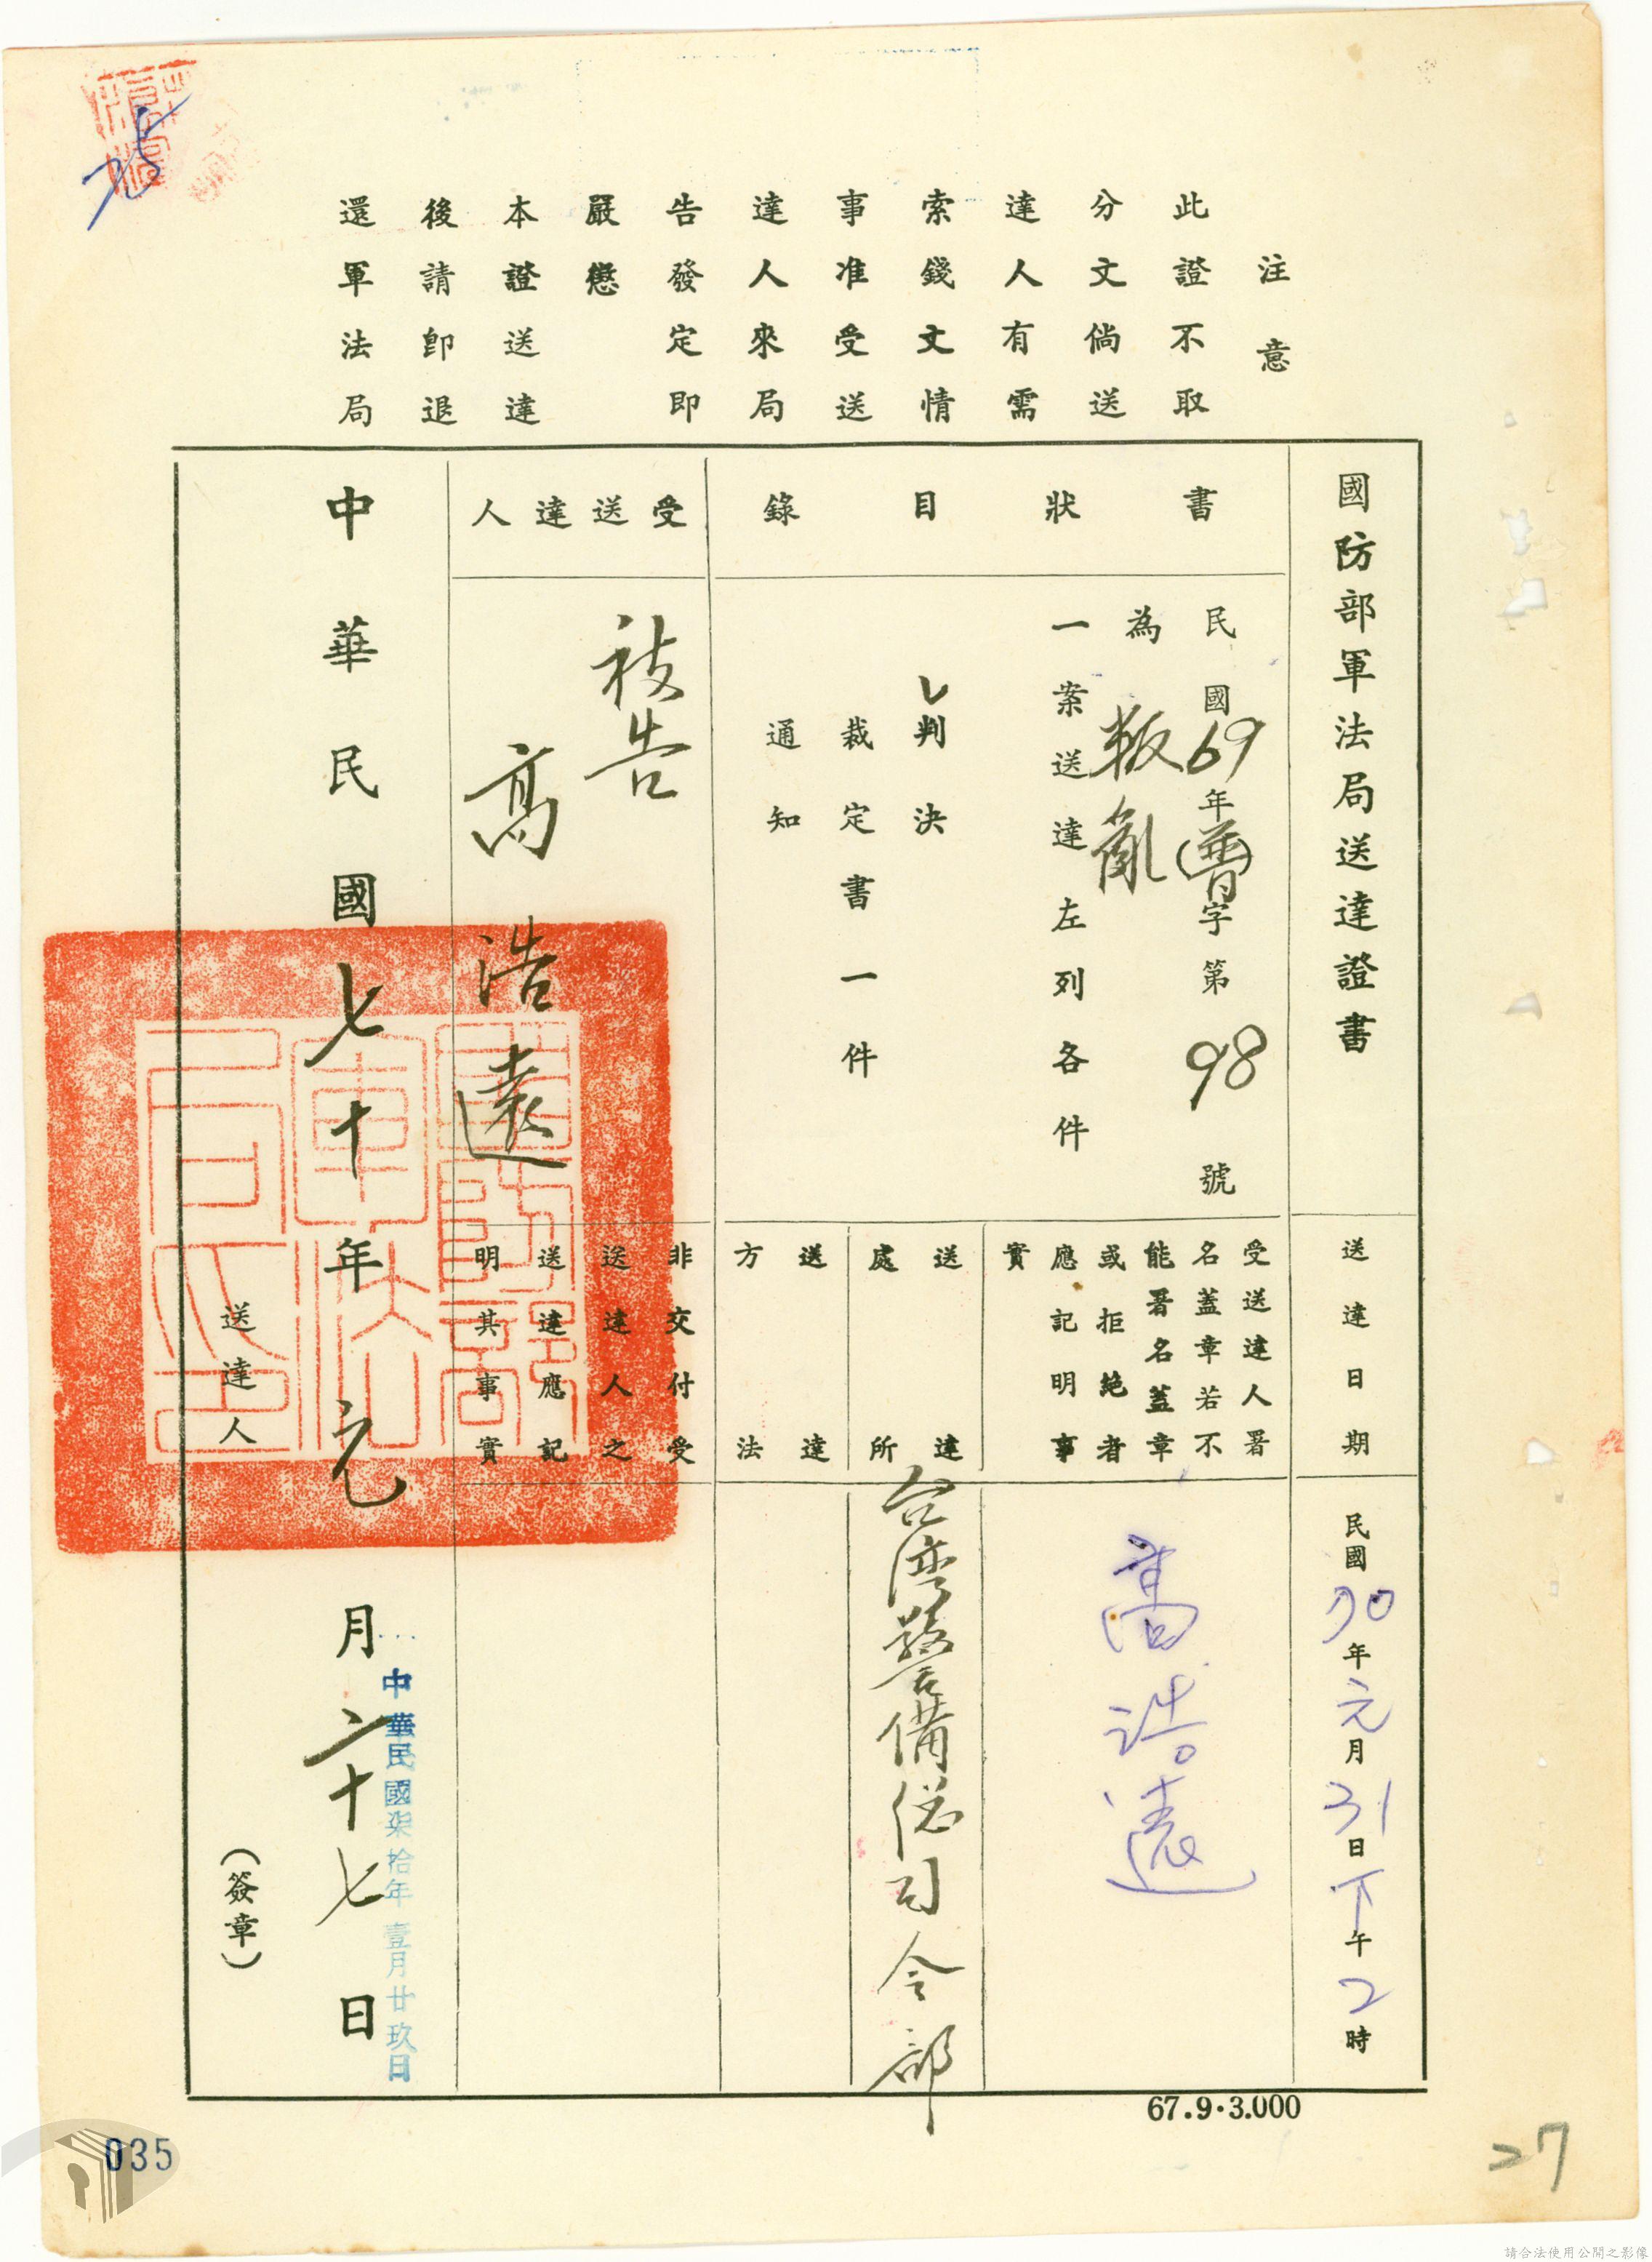 注意
此證不取
分文倘送
達人有需
索錢文情
事准受送
達人來局
告發定即
嚴懲
本證送達
後請即退
還軍法局
國防部軍法局送達證書
書狀目錄
民國69年(普)字第98號
為叛亂
一案送達左列各件
✓判決
裁定書一件
通知
受送達人
被告
高浩遠
送達日期
民國70年元月31日下午2時
受送達人署
名蓋章若不
能署名蓋章
或拒絕者
應記明事
實
高浩遠
送達
處所
台灣警備總司令部
送達
方法
非交付受
送達人之
送達應記
明其事實
中華民國七十年元月二十七日
中華民國柒拾年壹月廿玖日
送達人
(簽章)
國防部
軍法局
67.9.3.000
035
27
75
請合法使用公開之影像